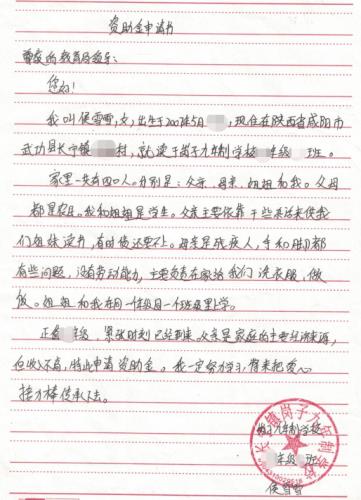 资助金申请书
尊敬的教育局领导:
您好!
我叫侯雪雪,女,出生于2002年5月,现住在陕西省咸阳市
武功县长宁镇村,就读于岗子九年制学校年级班。
家里一共有四口人。分别是:父亲、母亲、姐姐和我。父母
都是农民。我和姐姐是学生。父亲主要依靠干些杂活来供我
们姐妹读书,有时债还要不上。母亲是残疾人,手和脚都
有些问题,没有劳动能力,主要负责在家给我们洗衣服,做
饭。姐姐和我在同一年级同一个班级里上学。
正值年级,紧张时刻已经到来。父亲是家庭的主要经济来源,
但收入不高,特此申请资助金。我一定努力学习,将来把爱心
接力棒传承下去。
岗子九年制学校
年级班
侯雪雪
长宁镇岗子九年制学校